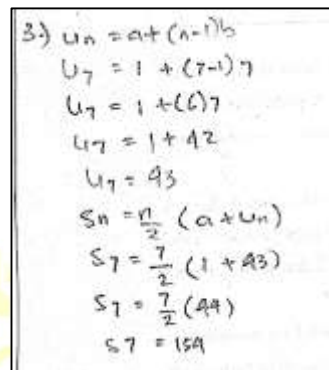 3.) Un = a+(n-1)b
U7 = 1 + (7-1) 7
U7 = 1 + (6) 7
U7 = 1 + 42
U7 = 43
Sn = n/2 (a+Un)
S7 = 7/2 (1 + 43)
S7 = 7/2 (44)
S7 = 154